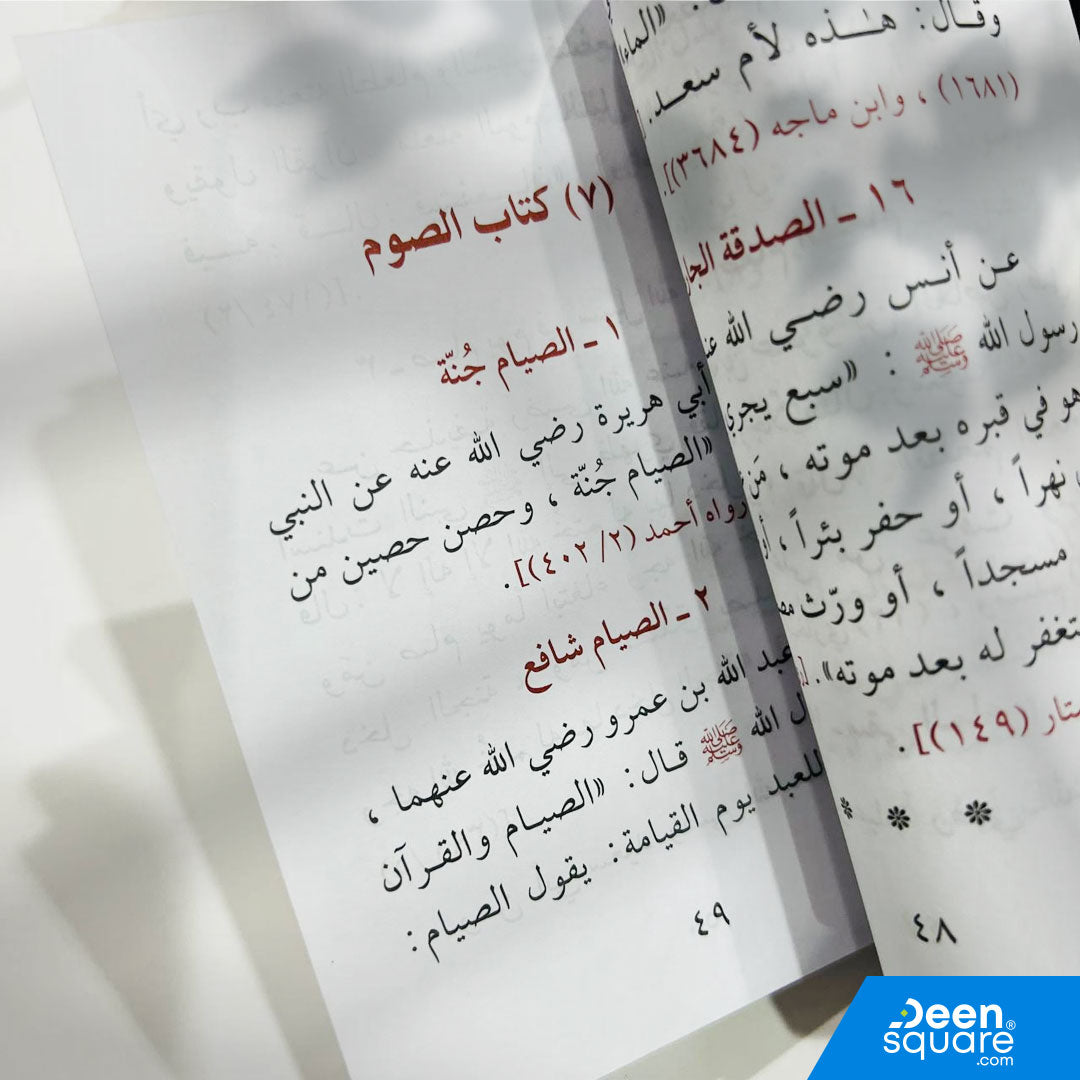 وقال: هذه لأم سعد.
(١٦٨١) ، وابن ماجه (٣٦٨٤)].
١٦ ـ الصدقة
عن أنس رضي الله
رسول الله ﷺ : «سبع يجري
هو في قبره بعد موته ، مَن
نهراً ، أو حفر بئراً ، أو
مسجداً ، أو ورّث
له بعد موته».
(١٤٩)].
* * *
٤٨
(٧) كتاب الصوم
١ ـ الصيام جُنّة
أبي هريرة رضي الله عنه عن النبي
«الصيام جُنّة ، وحصن حصين من
رواه أحمد (٢/ ٤٠٢)].
٢ ـ الصيام شافع
عبد الله بن عمرو رضي الله عنهما ،
الله ﷺ قال: «الصيام والقرآن
للعبد يوم القيامة: يقول الصيام:
٤٩
Deen®
square
.com